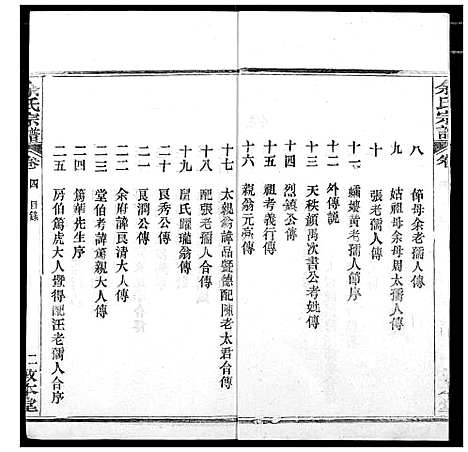 余氏宗譜
卷
八 節母余老孺人傳
九 姑祖母余母周太孺人傳
十 張老孺人傳
十一 孀黃老孺人節序
十二 外傳說
十三 天秩顏禹次書公考妣傳
十四 烈鎮公傳
十五 祖考義行傳
十六 親翁元亮傳
十七 太親翁諱品暨德配陳老太君合傳
十八 配張老孺人合傳
十九 屋氏躍瓏翁傳
二十 艮秀公傳
二一 艮潤公傳
二二 余府諱艮清大人傳
二三 堂伯考諱篤親大人傳
二四 篤華先生序
二五 房伯篤虎大人暨得配汪老孺人合序
余氏宗譜
卷四 目錄
二 敦本堂